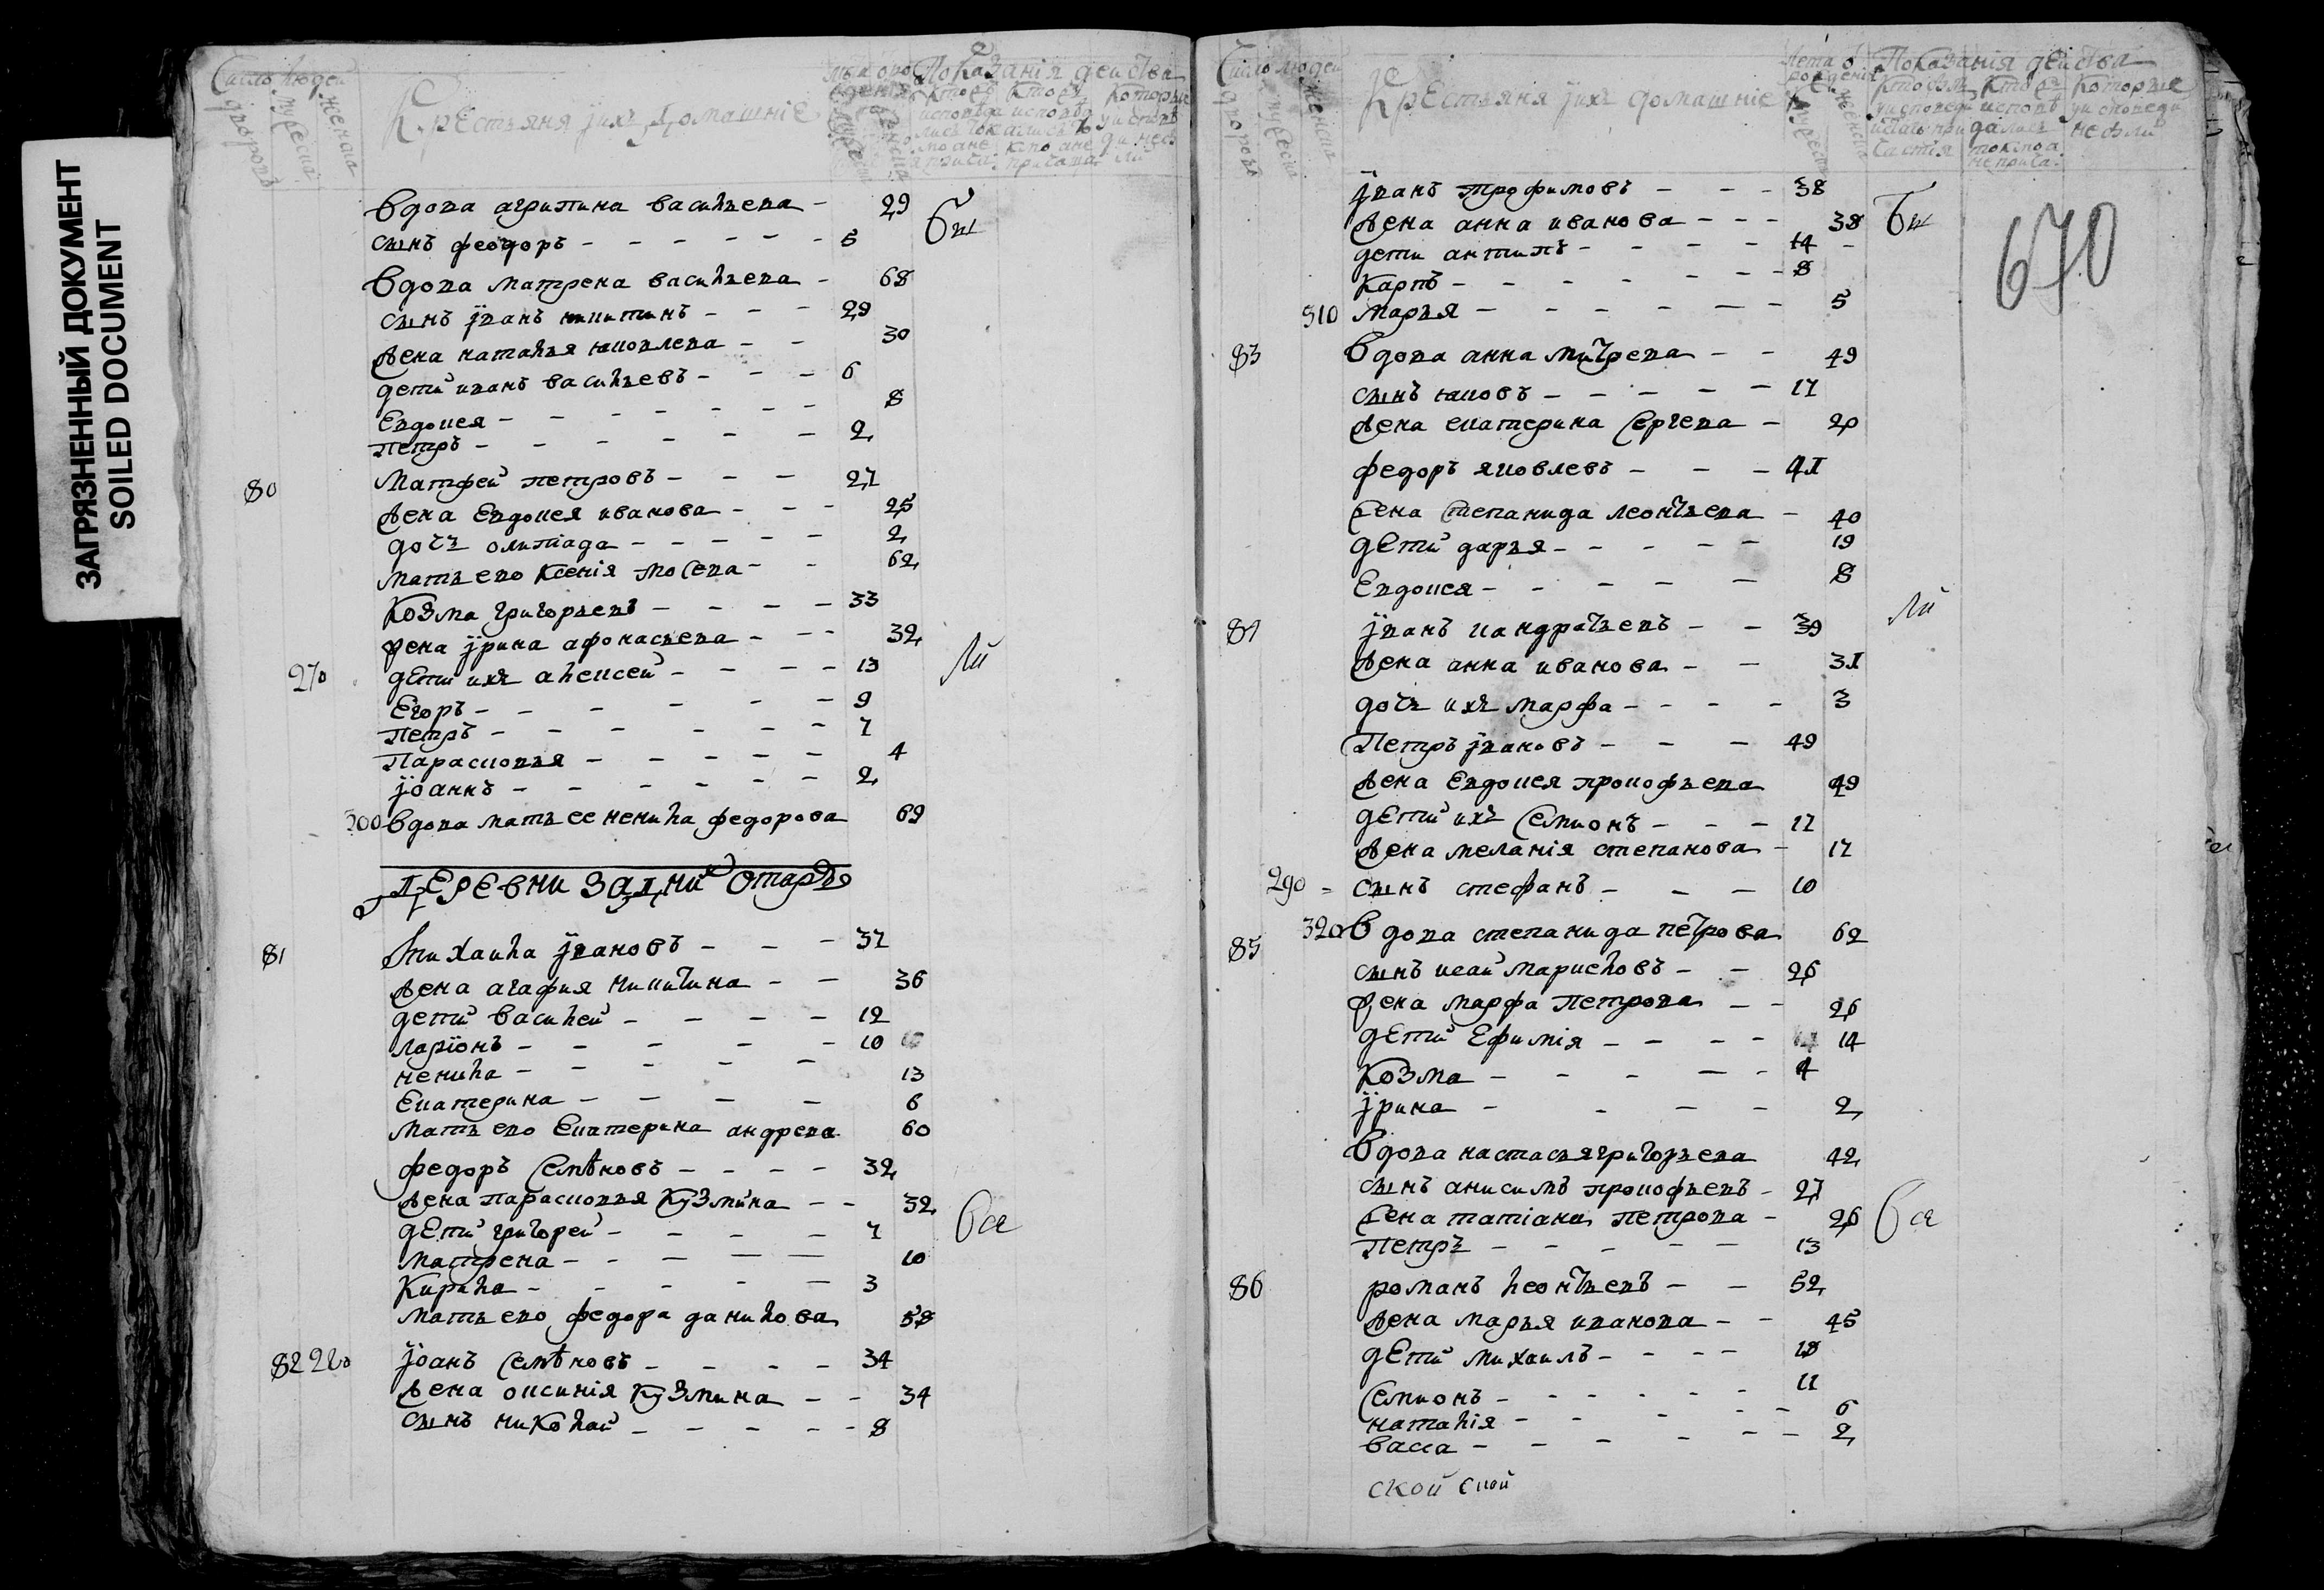 ЗАГРЯЗНЕННЫЙ ДОКУМЕНТ
SOILED DOCUMENT
Число людей
дворовъ
мужеска
женска
Крестьяня ӱихъ домашніе
Показанія действа
вдова агрипина василъева - 29
сынъ феодоръ - 5
бы
вдова матрена василъева - 68
сынъ ӱванъ никитинъ - 29
жена наталъя яковлева - 30
дети иванъ василъевъ - 6
Евдокея - 8
петръ - 2
80 Матфей петровъ - 27
жена Евдокея иванова - 25
дочъ олипіада - 2
матъ ево Ксенія мосева - 62
Козма григоръевъ - 33
жена ӱрина афонасъева - 32
270 дети ихъ алексей - 13
ли
Егоръ - 9
Петръ - 7
Парасковъя - 4
ӱоаннъ - 2
300 вдова матъ ее ненила федорова 69
деревни Задни Отаръя
81 михаила ӱвановъ - 37
жена агафия никитина - 36
дети василей - 12
ларіонъ - 10
ненила - 13
Екатерина - 6
матъ ево Екатерина андрева 60
федоръ Семѣновъ - 32
жена парасковъя Кузмина - 32
дети григорей - 7
вся
матрена - 10
Кирила - 3
матъ ево федора данилова 58
82 280 ӱоанъ Семѣновъ - 34
жена оксинія Кузмина - 34
сынъ николай - 8
Число людей
дворовъ
мужеска
женска
Крестьяня ӱихъ домашніе
Лета о рожденія
мужеска
женска
Показанія действа
ӱванъ трофимовъ - 38
жена анна иванова - 38
бы
670
дети антипъ - 14
Карпъ - 8
310 маръя - 5
83 вдова анна митрева - 49
сынъ яковъ - 17
жена екатерина Сергева - 20
федоръ яковлевъ - 41
жена Степанида леонтъева - 40
дети даръя - 19
Евдокея - 8
ли
84 ӱванъ кандратъевъ - 39
жена анна иванова - 31
дочъ ихъ марфа - 3
Петръ ӱвановъ - 49
жена Евдокея прокофъева 49
дети ихъ Семионъ - 17
жена меланія степанова - 17
290 - сынъ стефанъ - 10
85 320 вдова степанида петрова 62
сынъ исай мариеловъ - 26
жена марфа Петрова - 26
дети Ефимія - 14
Козма - 4
ӱрина - 2
вдова настасъя григоръева 42
сынъ анисимъ прокофъевъ - 27
жена татіана петрова - 26
вся
Петръ - 13
86 романъ леонтъевъ - 52
жена маръя иванова - 45
дети михаилъ - 18
Семионъ - 11
наталія - 6
васса - 2
ской ской